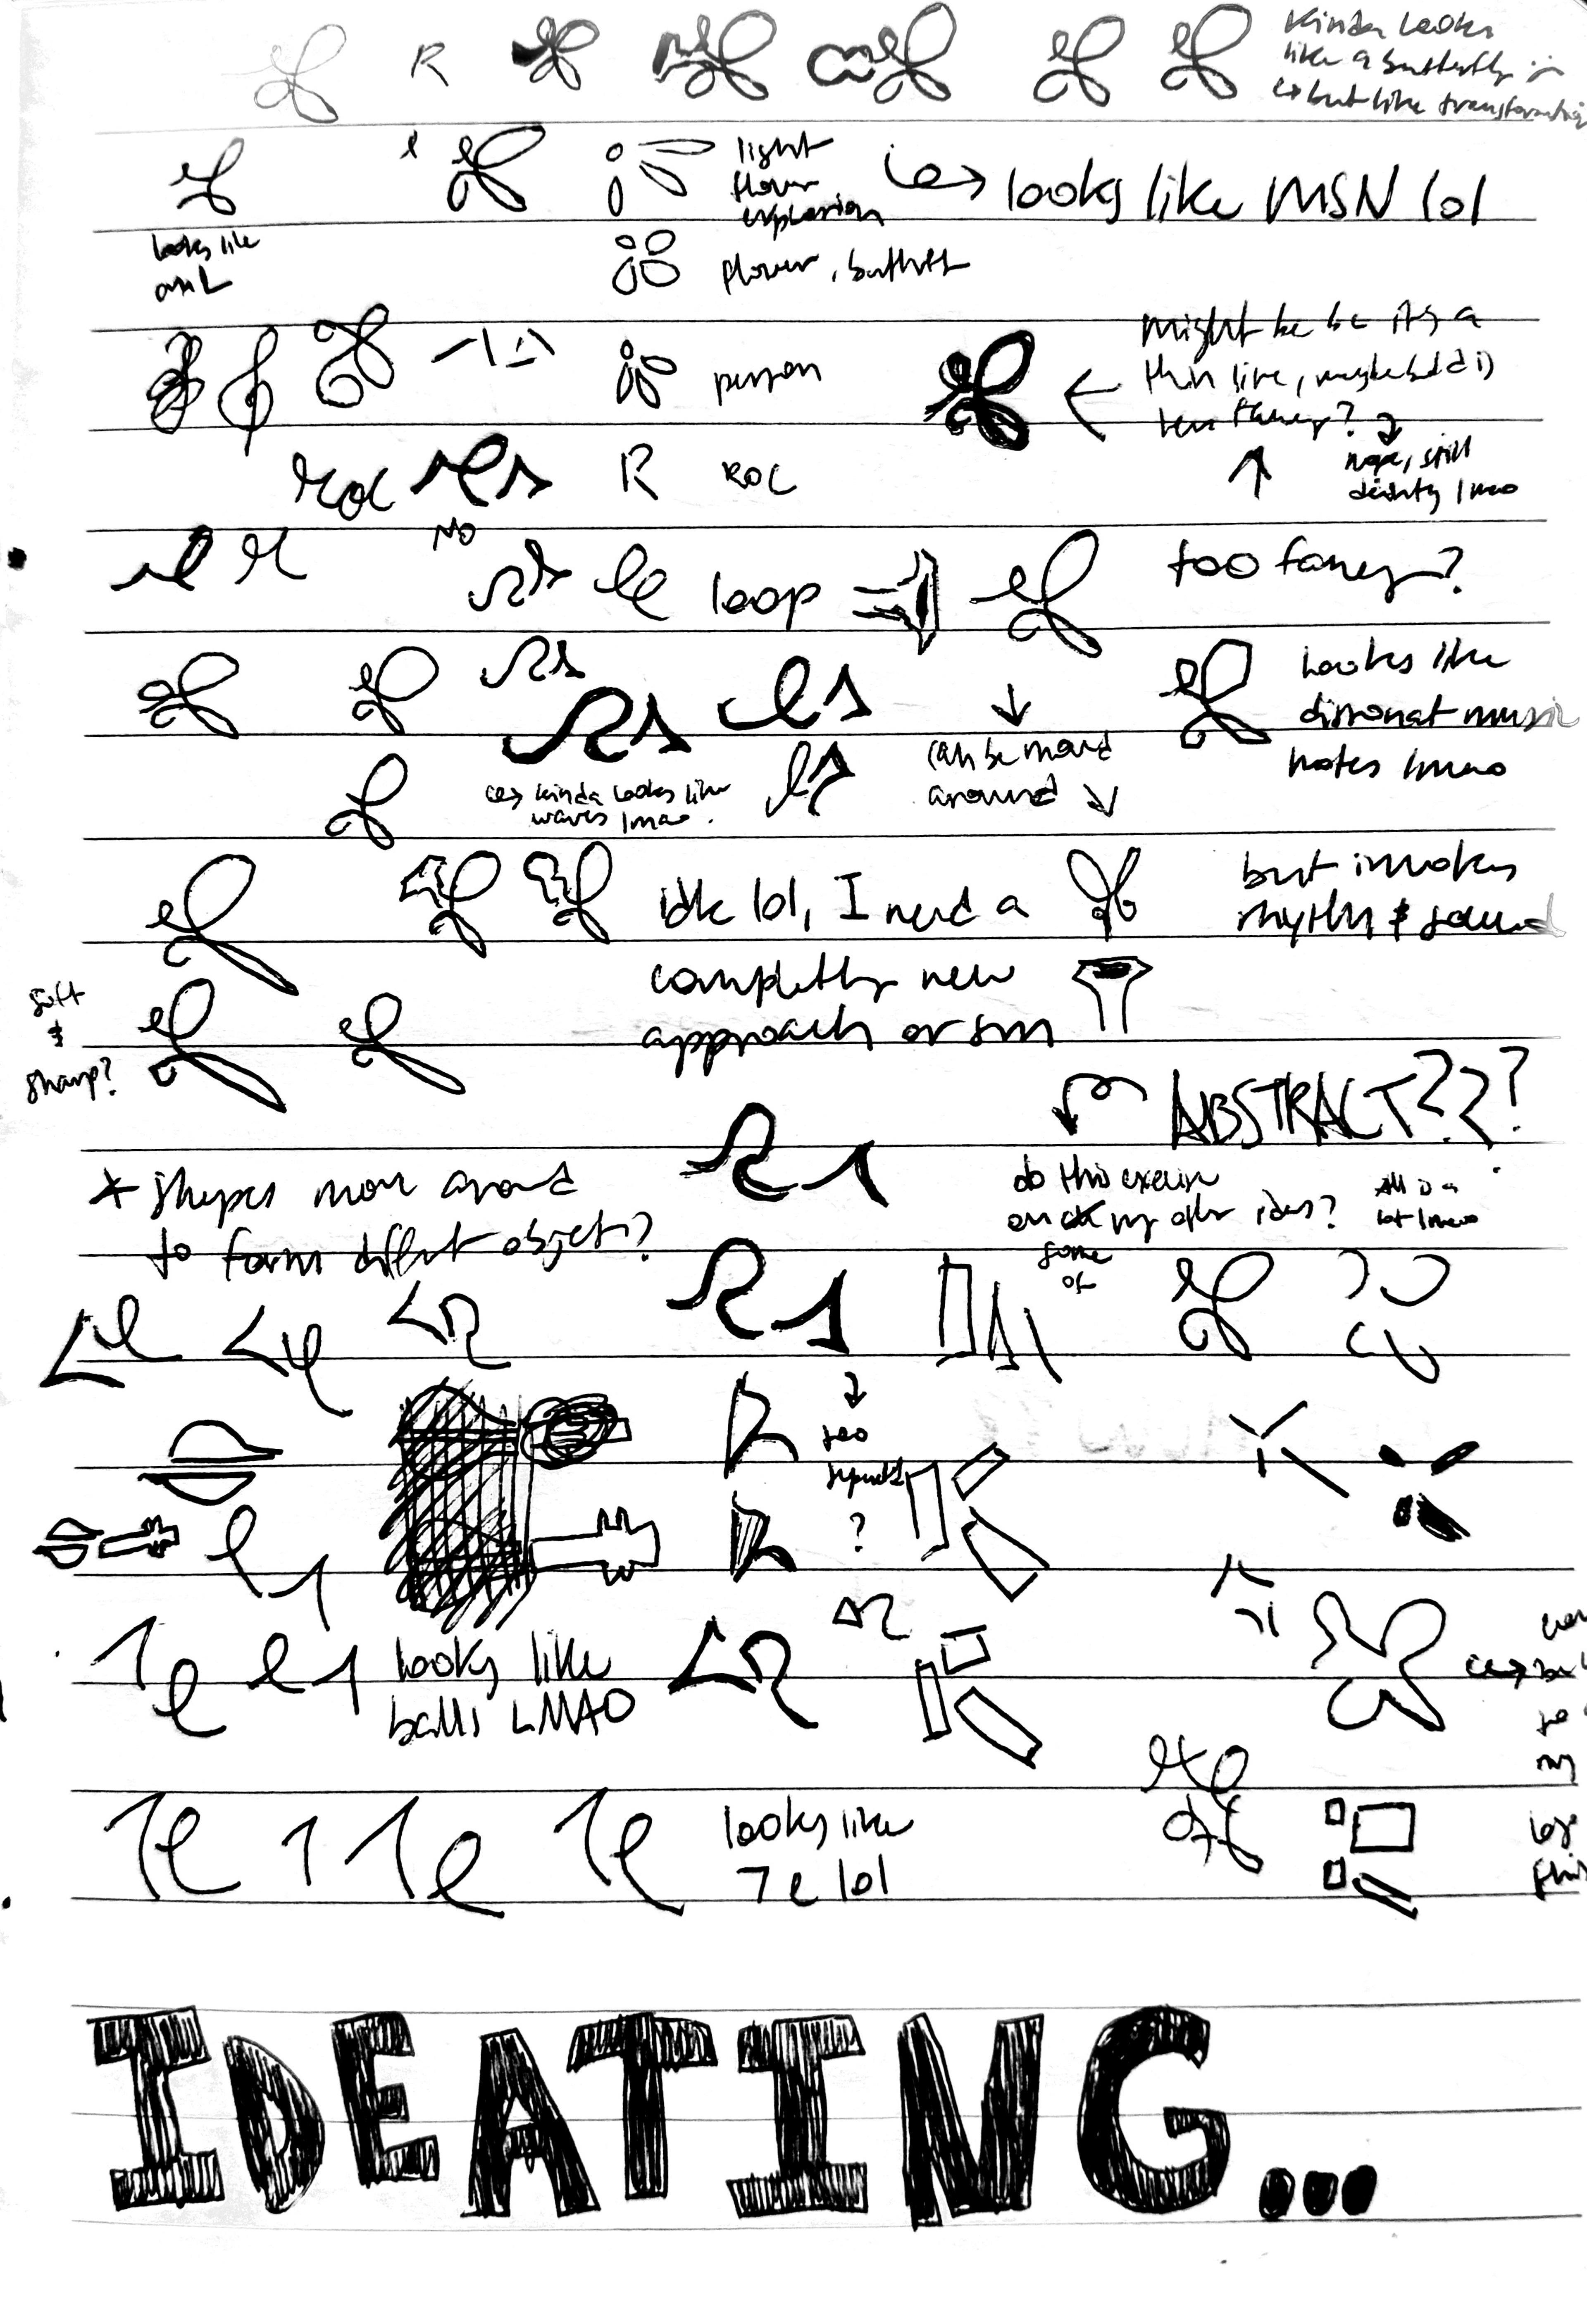 Kinda looks
like a butterfly
but like transforming
R
light
flower
explosion
looks like MSN lol
looks like
an L
flower,
person
might be bc it's a
thin line, maybe bold is
less fancy?
nope, still
lmao
R
ROC
NO
loop
too fancy?
Looks like
dissonat music
notes lmao
can be moved
around
kinda looks like
waves lmao.
but invokes
rhythm & sound
idk lol, I need a
completly new
approach or sm
soft
&
sharp?
ABSTRACT???
do this
on my other ideas?
some
of
All is a
lot lmao
* shapes move around
to form objects?
too
?
looks like
balls LMAO
looks like
7 e lol
IDEATING...